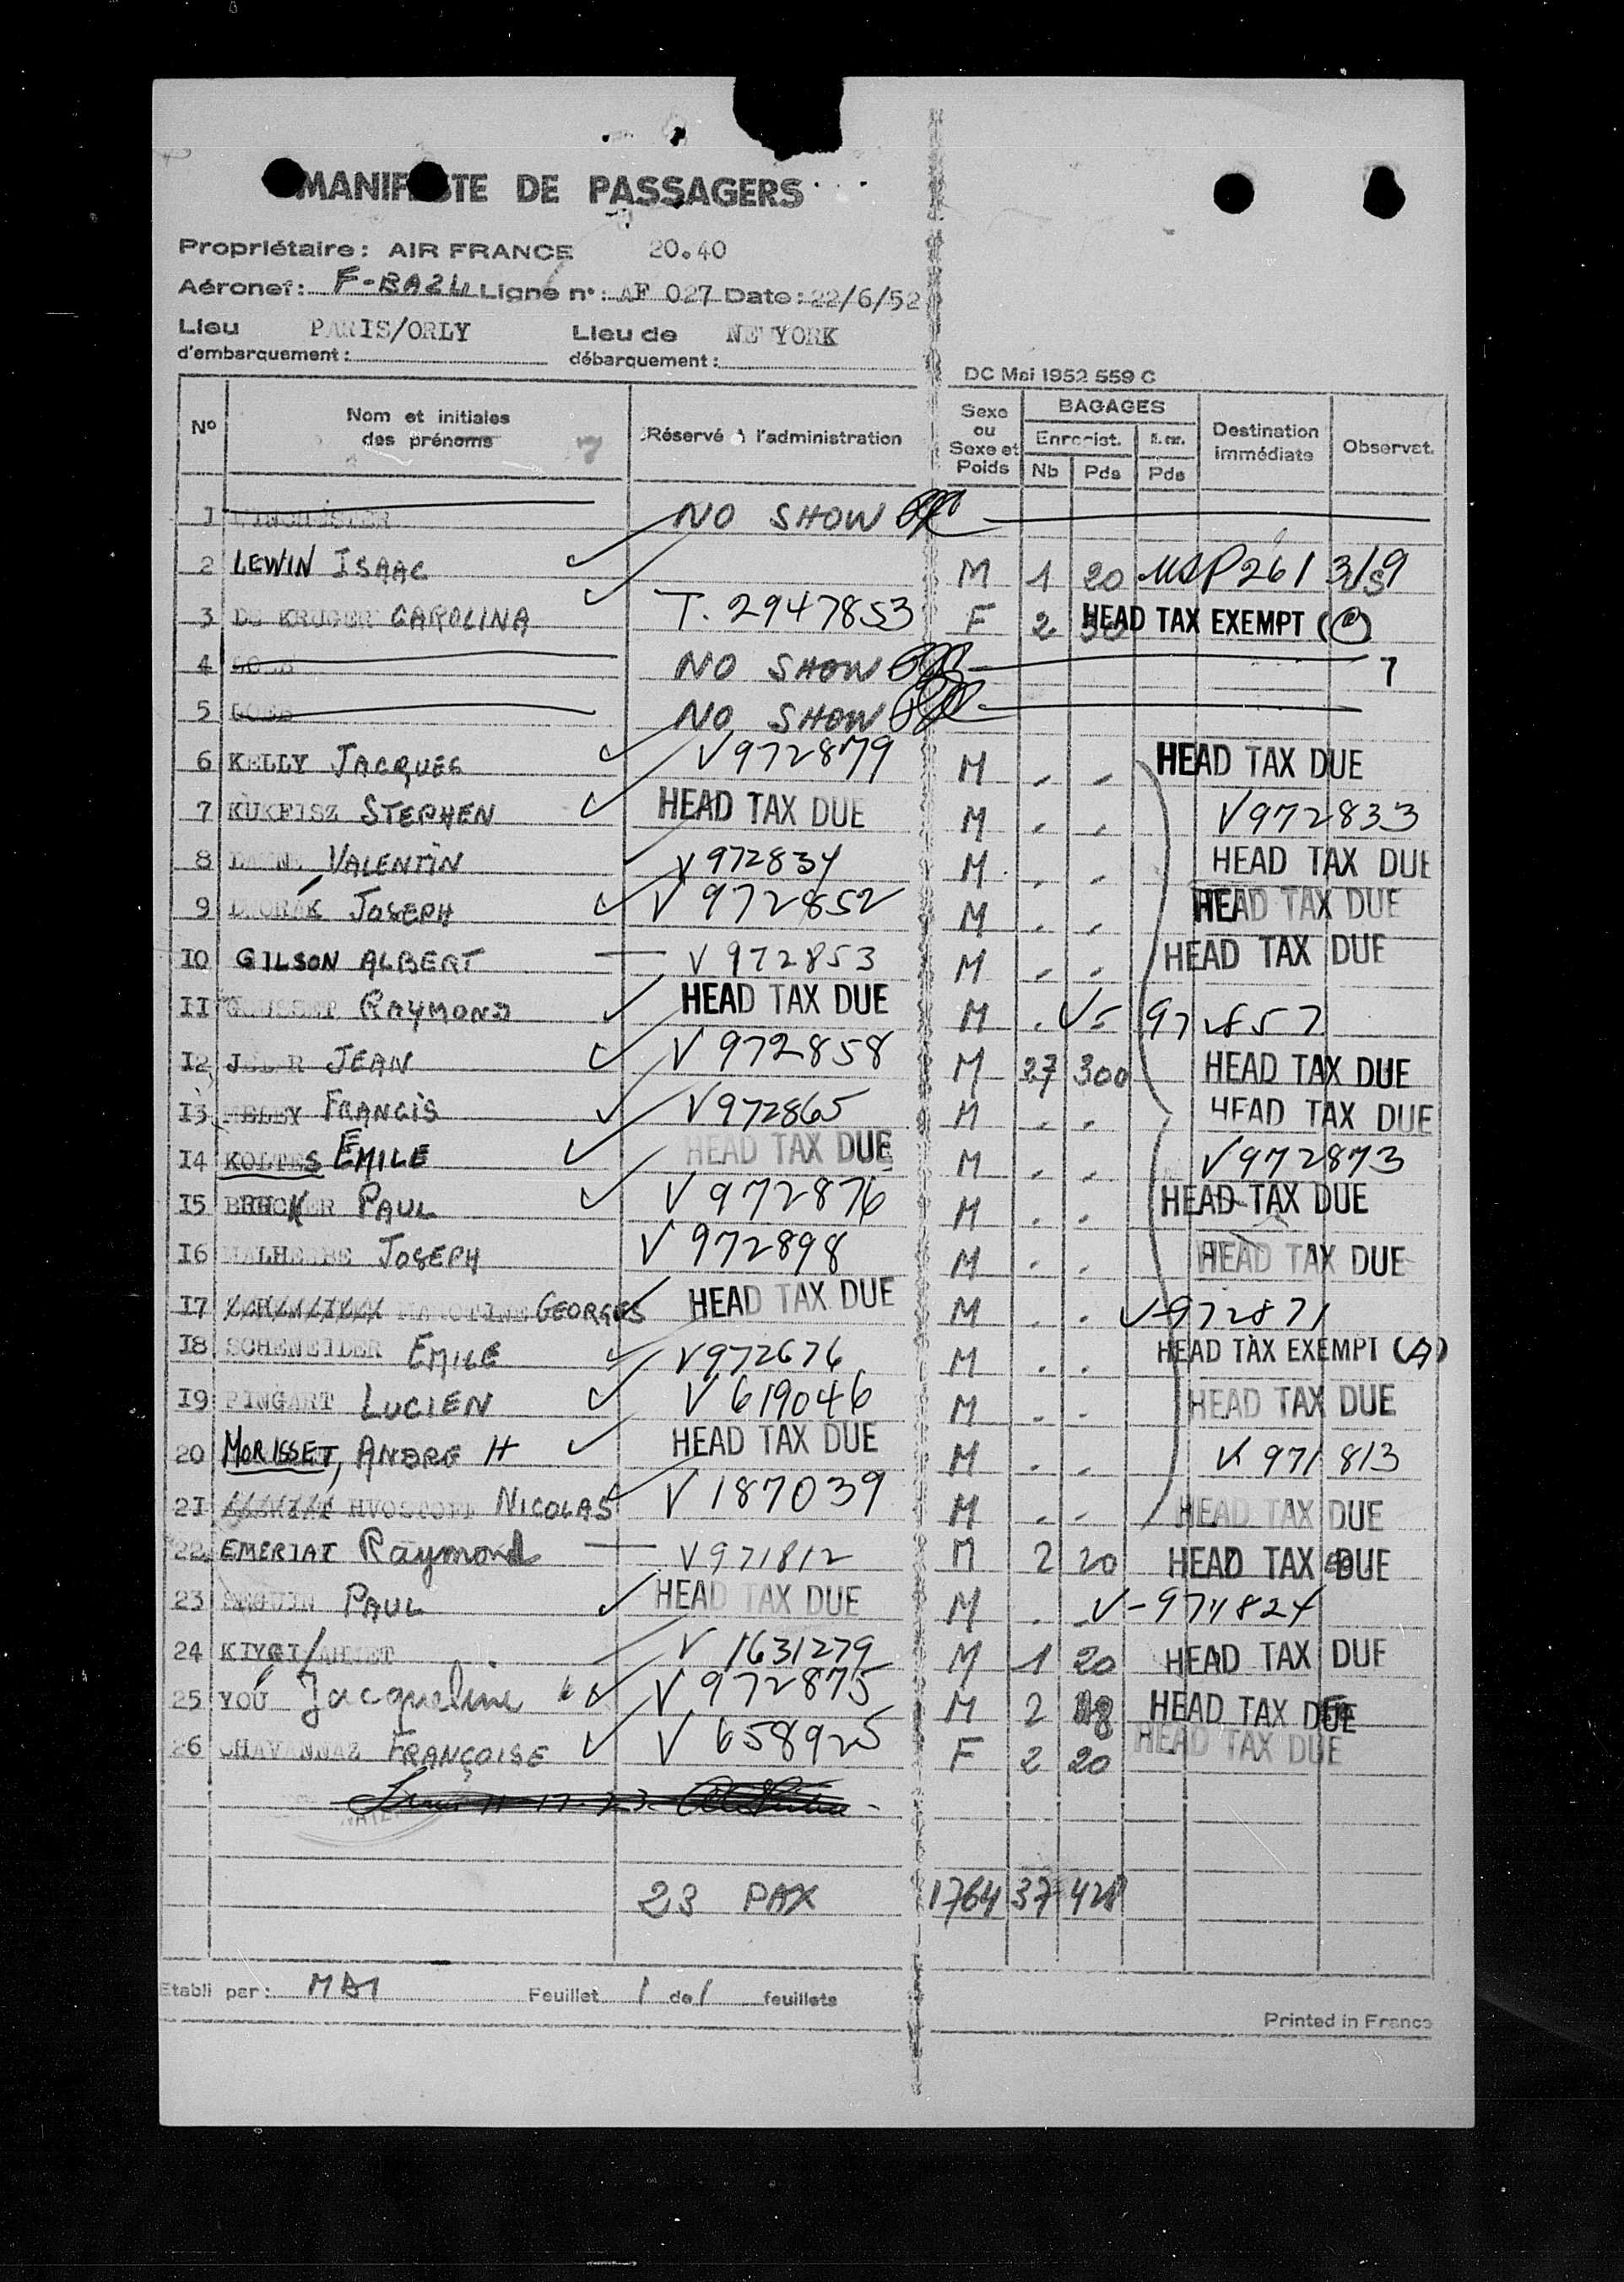 MANIFESTE DE PASSAGERS
Propriétaire : AIR FRANCE 20.40
Aéronef : F-BAZL Ligne n° : AF 027 Date : 22/6/52
Lieu d'embarquement : PARIS/ORLY Lieu de débarquement : NEW YORK
DC Mai 1952 559 C
N° Nom et initiales des prénoms Réservé à l'administration Sexe ou Sexe et Poids BAGAGES Enregist. Nb Pds Pds Destination immédiate Observat.
1 NO SHOW
2 LEWIN ISAAC M 1 20 USP 261 3/59
3 DE KRUGER CAROLINA T. 2947853 F 2 30 HEAD TAX EXEMPT
4 NO SHOW 7
5 NO SHOW
6 KELLY JACQUES V972879 M " " HEAD TAX DUE
7 STEPHEN HEAD TAX DUE M " " V972833
8 VALENTIN V972834 M " " HEAD TAX DUE
9 DVORAK JOSEPH V 972852 M " " HEAD TAX DUE
10 GILSON ALBERT V 972853 M " " HEAD TAX DUE
11 RAYMOND HEAD TAX DUE M " " V 972857
12 JEAN V 972858 M 27 300 HEAD TAX DUE
13 FRANCIS V972865 M " " HEAD TAX DUE
14 KOLTES EMILE HEAD TAX DUE M " " V972873
15 PAUL V 972876 M " " HEAD TAX DUE
16 MALHERBE JOSEPH V 972898 M " " HEAD TAX DUE
17 GEORGES HEAD TAX DUE M " " V-972871
18 SCHENEIDER EMILE V972676 M " " HEAD TAX EXEMPT (A)
19 PINGART LUCIEN V 619046 M " " HEAD TAX DUE
20 MORISSET, ANDRE H HEAD TAX DUE M " " V 971813
21 HVOSTOFF NICOLAS V 187039 M " " HEAD TAX DUE
22 EMERIAT Raymond V971812 M 2 20 HEAD TAX DUE
23 SEGUIN PAUL HEAD TAX DUE M " " V-971824
24 V 1631279 M 1 20 HEAD TAX DUE
25 YOU Jacqueline V 972875 M 2 18 HEAD TAX DUE
26 CHAVANNAZ FRANÇOISE V 658925 F 2 20 HEAD TAX DUE
23 PAX 1764 37 428
Etabli par : Feuillet 1 de 1 feuillets
Printed in France